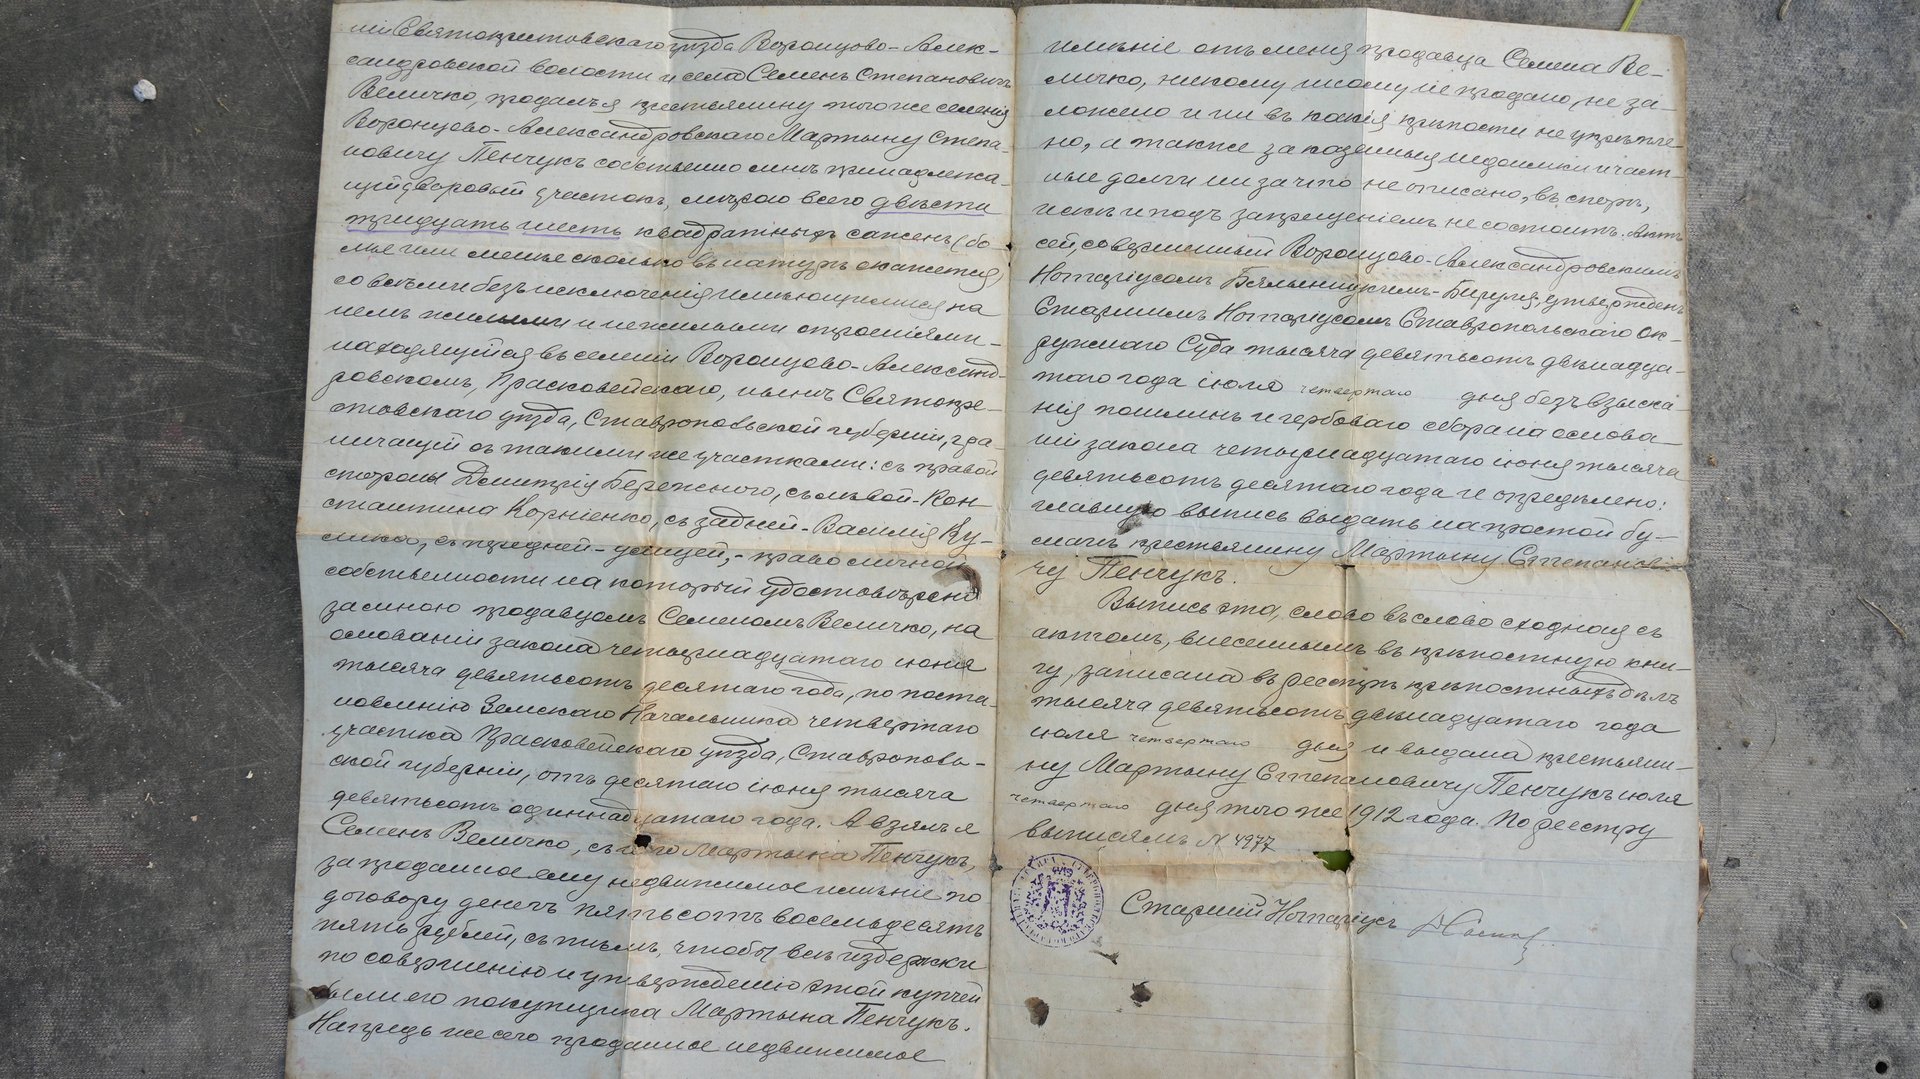 ніи Святокрестовскаго уѣзда Воронцово-Алек-
сандровской волости и села Семенъ Степановичъ
Величко, продалъ я крестьянину того же селенія
Воронцово-Александровскаго Мартыну Степа-
новичу Пенчукъ собственно мнѣ принадлежа-
щій дворовый участокъ, мѣрою всего двѣсти
тридцать шесть квадратныхъ сажень (бо
лѣе или менѣе сколько въ натурѣ окажется)
со всѣми безъ исключенія имѣющимися на
немъ жилыми и нежилыми строеніями-
находящійся въ селеніи Воронцово-Александ-
ровскомъ, Прасковейскаго, нынѣ Святокре-
стовскаго уѣзда, Ставропольской губерніи, гра-
ничащій съ такими же участками: съ правой
стороны Дмитрія Бережного, съ лѣвой-Кон
стантина Корніенко, съ задней-Василія Ку-
лика, съ передней-улицей,-право личной
собственности на который удостовѣрено
за мною продавцомъ Семеномъ Величко, на
основаніи закона четырнадцатаго іюня
тысяча девятьсотъ десятаго года, по поста-
новленію Земскаго Начальника четвертаго
участка Прасковейскаго уѣзда, Ставрополь-
ской губерніи, отъ десятаго іюня тысяча
девятьсотъ одиннадцатаго года. А взялъ я
Семенъ Величко, съ него Мартына Пенчукъ,
за проданное ему недвижимое имѣніе по
договору денегъ пятьсотъ восемьдесятъ
пять рублей, съ тѣмъ, чтобы всѣ издержки
по совершенію и утвержденію этой купчей
были его покупщика Мартына Пенчукъ.
Напредь же сего проданное недвижимое
имѣніе отъ меня продавца Семена Ве-
личко, никому иному не продано, не за-
ложено и ни въ какія крѣпости не укрѣпле-
но, а также за казенныя недоимки и част-
ные долги ни за что не описано, въ спорѣ,
искѣ и подъ запрещеніемъ не состоитъ. Актъ
сей, совершенный Воронцово-Александровскимъ
Нотаріусомъ Бялыницкимъ-Бируля, утвержденъ
Старшимъ Нотаріусомъ Ставропольскаго Ок-
ружнаго Суда тысяча девятьсотъ двѣнадца-
таго года іюля четвертаго дня безъ взыска-
нія пошлинъ и гербоваго сбора на основа-
ніи закона четырнадцатаго іюня тысяча
девятьсотъ десятаго года и опредѣлено:
главную выпись выдать на простой бу-
магѣ крестьянину Мартыну Степанови-
чу Пенчукъ.
Выпись эта, слово въ слово сходная съ
актомъ, внесеннымъ въ крѣпостную кни-
гу, записана въ реестръ крѣпостныхъ дѣлъ
тысяча девятьсотъ двѣнадцатаго года
іюля четвертаго дня и выдана крестьяни-
ну Мартыну Степановичу Пенчукъ іюля
четвертаго дня того же 1912 года. По реестру
выписямъ N 4977
Старшій Нотаріусъ